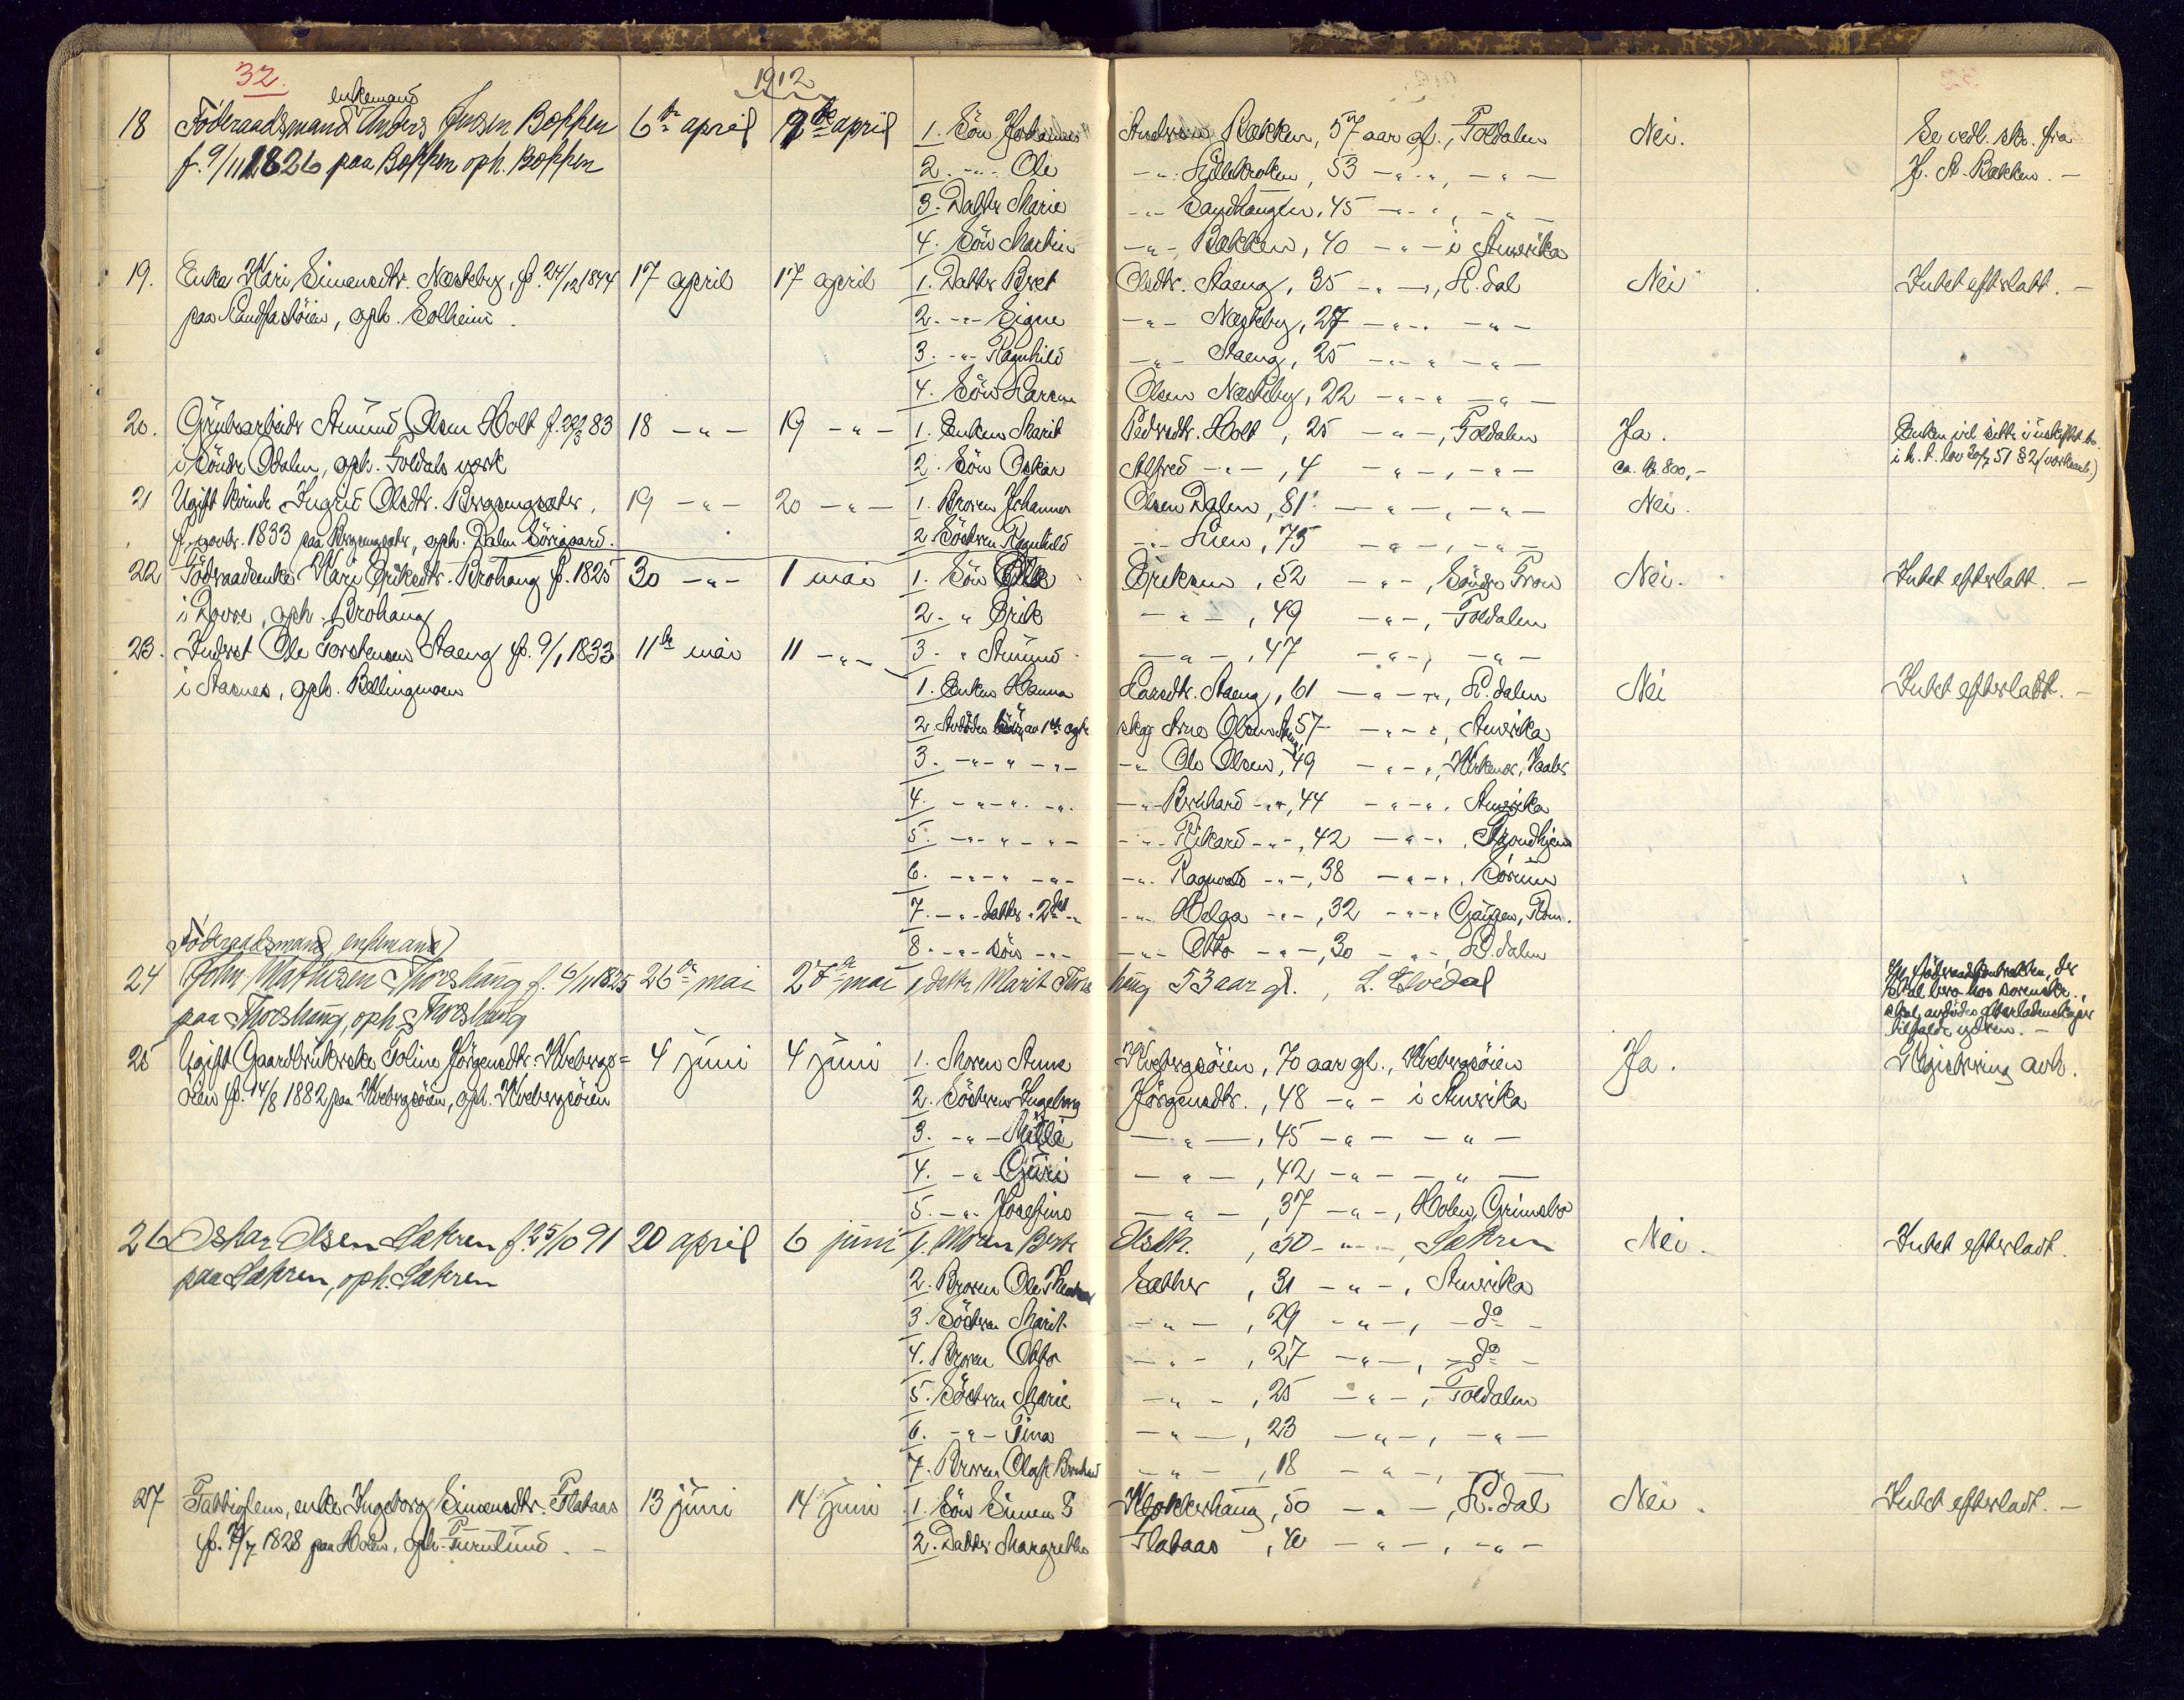 32.
1912
enkemand
18 Föderaadsmand Anders Jensen Boppen 6te april 7de april 1. Sön Johannes Andersen Bakken, 57 aar gl., Foldalen Nei. Se vedl. skr. fra
f. 9/11 1826 paa Boppen oph. Boppen 2. -"- Ole -"- Lillekroken, 53 -"-, -"- J. A. Bakken. -
3. Datter Marie -"- Sandhaugen, 45 -"-, -"-
4. Sön Martin -"- Bakken, 40 -"- i Amerika
19. Enke Kari Simensdtr. Næsteby, f. 24/12 1844 17 april 17 april 1. Datter Beret Olsdtr. Staeng, 35 -"-, A. dal Nei Intet efterlatt. -
paa Sandfastöien, oph. Solheim. 2. -"- Signe -"- Næsteby, 27 -"- -"-
3. -"- Ragnhild -"- Staeng, 25 -"- -"-
4. Sön Karsten Olsen Næsteby, 22 -"- -"-
20. Grubearbeider Amund Olsen Holt f. 22/3 83 18 -"- 19 -"- 1. Enken Marit Pedersdtr. Holt, 25 -"-, Foldalen Ja. Enken vil sitte i uskiftet bo
i Söndre Odalen, oph. Foldals verk 2. Sön Oskar Alfred -"-, 4 -"-, -"- ca. kr. 800,- i h. t. lov 30/7 51 § 2
21 Ugift kvinde Ingrid Olsdtr. Bergengsæter, 19 -"- 20 -"- 1. Broren Johannes Olsen Dalen, 81 -"-, -"- Nei.
f. novbr. 1833 paa Bergengsæter, oph. Dalen Sörigaard. 2 Söstren Ragnhild -"- Lien, 75 -"-, -"-
22 Föderaadsenke Kari Eriksdtr. Brohaug f. 1825 30 -"- 1 mai 1. Sön Ole Eriksen, 52 -"-, Söndre Fron Nei. Intet efterlatt. -
i Dovre, oph. Brohaug 2. " Erik -"-, 49 -"-, Foldalen
23. Inderst Ole Torstensen Staeng f. 9/1 1833 11te mai 11 -"- 3. " Amund -"-, 47 -"-, -"-
i Stavnes, oph. Bellingmoen 1. Enken Hanna Larsdtr. Staeng, 61 -"-, A. dalen Nei Intet efterlatt. -
2. Avdödes sön av 1ste egte skap Arne Olsen Staeng, 57 -"-, Amerika
3. -"- " -"- -"- Ole Olsen, 49 -"-, Kirkenær, Vaaler
4. -"- " -"- -"- Bernhard -"-, 44 -"-, Amerika
5. -"- " -"- -"- Rikard -"-, 42 -"-, Trondhjem
6. -"- " -"- -"- Ragnvald -"-, 38 -"-, Sörum
7. -"- datter " 2det " -"- Helga -"-, 32 -"- Gaugen, Rom.
Föderaadsmand, enkemand 8. -"- sön -"- -"- Otto -"-, 30 -"-, A. dalen
24 John Mathisen Thorshaug f. 6/11 1825 26de mai 27de mai 1, datter Marit Thors haug 53 aar gl., L. Elvedal
paa Thorshaug, oph. Thorshaug
25 Ugift Gaardbrukerske Toline Jörgensdtr. Kvebergs= 4 juni 4 juni 1. Moren Anne Kvebergsöien, 70 aar gl., Kvebergsöien Ja. Registrering avh.
öien f. 14/8 1882 paa Kvebergsöien, oph. Kvebergsöien 2. Söstren Ingeborg Jörgensdtr., 48 -"- i Amerika
3. -"- Milla -"-, 45 -"- -"-
4. -"- Guri -"-, 42 -"- -"-
5. -"- Josefine -"-, 37 -"-, Holen, Grimsbo
26 Oskar Olsen Sætren f. 25/10 91 20 april 6 juni 1. Moren Berte Olsdtr., 50 -"-, Sætren Nei. Intet efterladt.
paa Sætren, oph. Sætren 2. Broren Ole Sæther, 31 -"-, Amerika
3. Söstren Marit -"-, 29 -"-, - do -
4. Broren Otto -"-, 27 -"-, - do -
5. Söstren Marie -"-, 25 -"-, Foldalen
6. -"- Tina -"-, 23 -"-, -"-
7. Broren Olaf Bernhard -"-, 18 -"-, -"-
27 Fattiglem, enke Ingeborg Simensdtr. Flataas 13 juni 14 juni 1. Sön Simen S Klokkerhaug, 50 -"-, A. dal Nei. Intet efterladt. -
1828 paa Holen, oph. Furulund. - 2. Datter Margrethe Flataas, 40 -"-, -"-